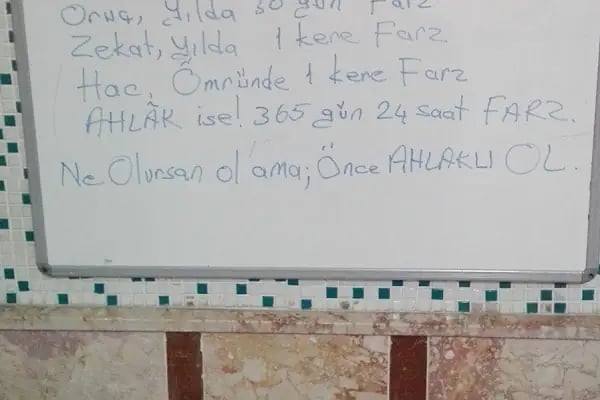 Oruç, Yılda 30 gün Farz
Zekat, Yılda 1 kere Farz
Hac, Ömründe 1 kere Farz
AHLÂK ise! 365 gün 24 saat FARZ.
Ne Olursan ol ama; Önce AHLAKLI OL.